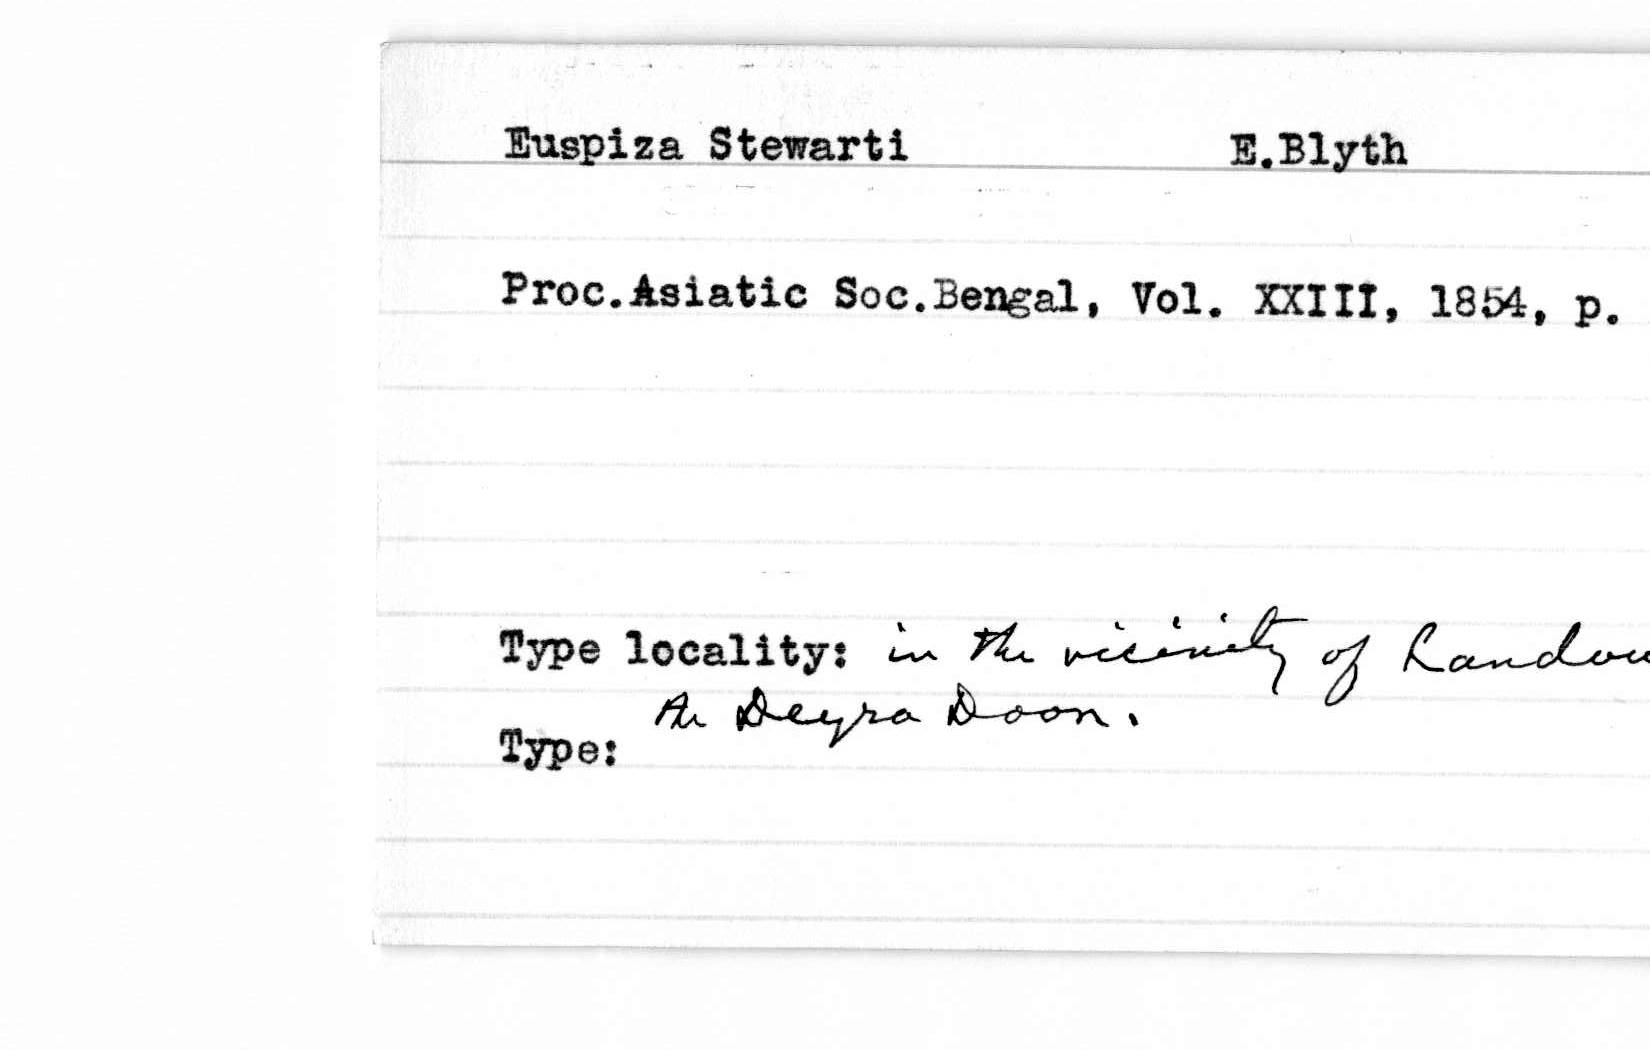 Euspiza Stewarti E.Blyth
Proc.Asiatic Soc.Bengal, Vol. XXIII, 1854, p.
Type locality: in the vicinity of Landou
the Deyra Doon.
Type: